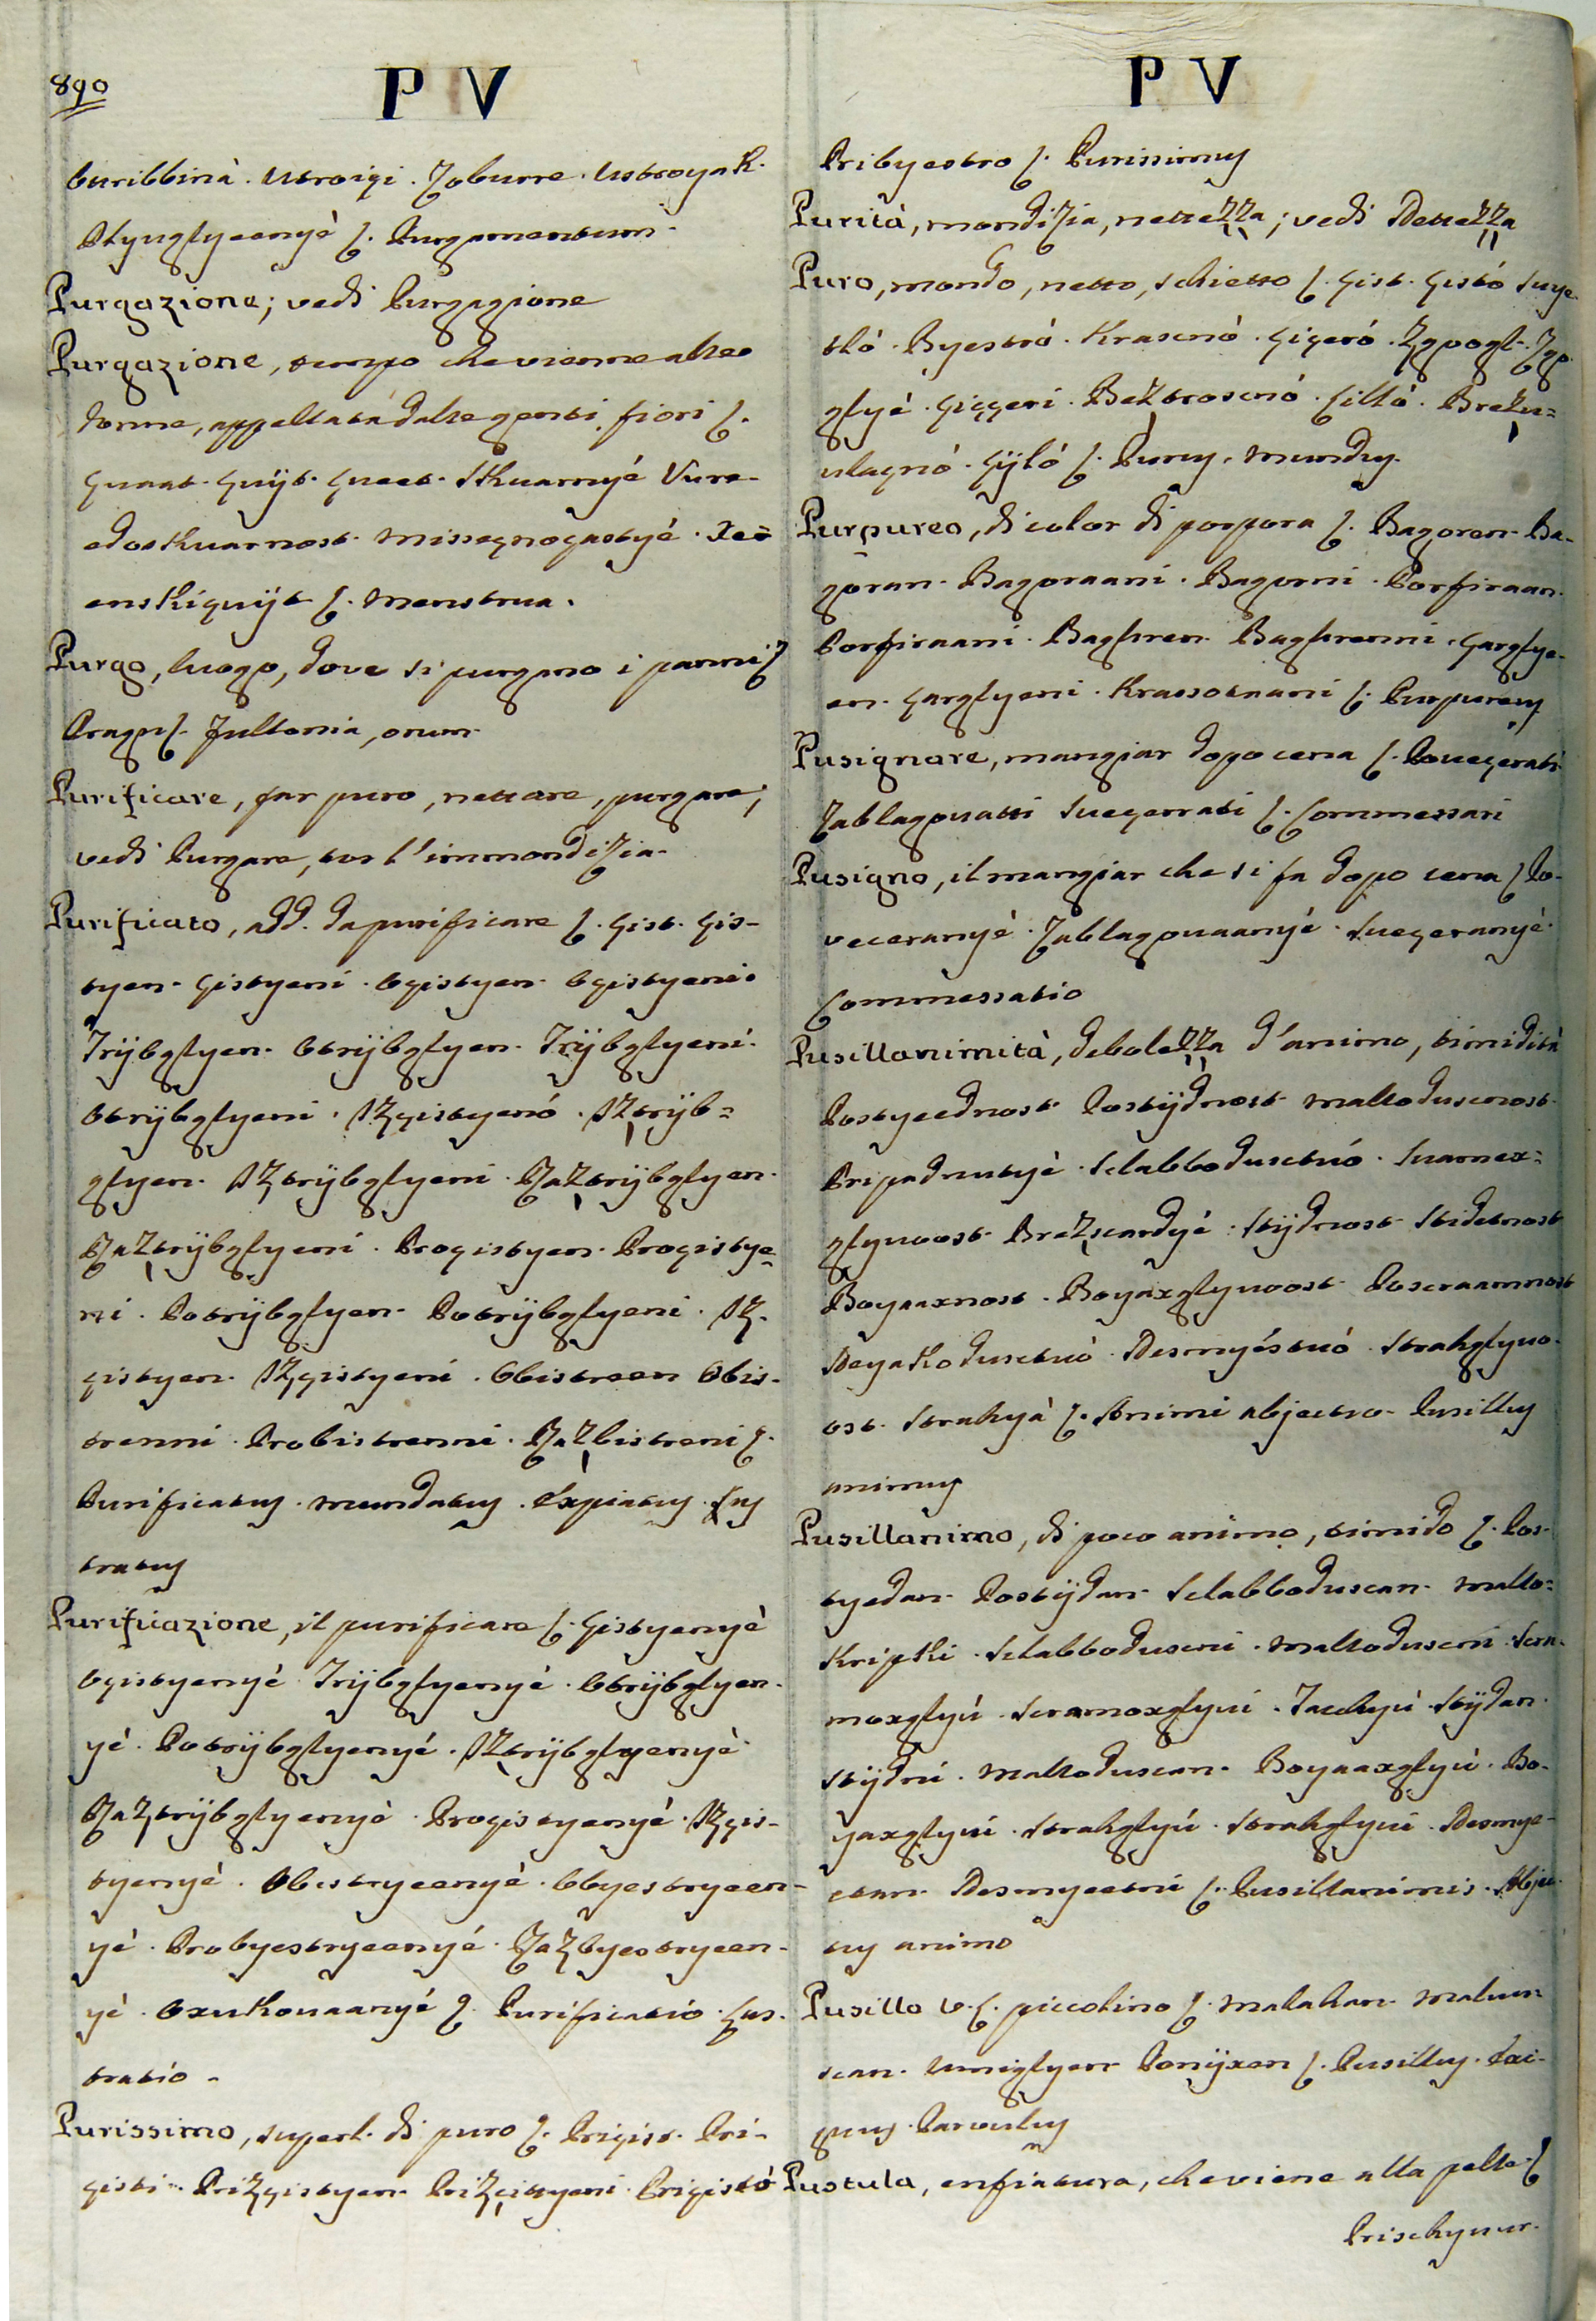 890
P V
buribbinà. Utroigi. Zoburre. Ustroyak.
Otyuglyeenyè ſ. Purgamentum.
Purgazione; vedi Purgagione
Purgazione, tempo che vienne alteo
donne, appellata dalte genti fiori ſ.
quaat. quijt. queet. Skuarnyé Vure-
edoskuarnost. Missegnogastyé. Xeē
enskiquijt ſ. Menstrua.
Purgo, luogo, dove si purgano i panni ſ
Pragn ſ. Fullonia, orum.
Purificare, far puro, nettare, purgare;
vedi Purgare, tor l'immondizia.
Purificato, add. da purificare ſ. çist. çis-
tyen. çistyeni. Oçistyen. Oçistyeni.
Trijbglyen. Otrijbglyen. Trijbglyeni.
Otrijbglyeni. Izçistyenó. Iztrijb-
glyen. Iztrijbglyeni. Raztrijbglyen.
Raztrijbglyeni. Proçistyen. Proçistye-
ni. Potrijbglyen. Potrijbglyeni. Iz.
çistyen. Izçistyeni. Obistreen Obis-
trenni. Probistrenni. Razbistreni ſ.
Purificatus. Mundatus. Expiatus. Lus
tratus
Purificazione, il purificare ſ. çistyenyè
Oçistyenyè Trijbglyenyè. Otrijbglyen-
yè. Potrijbglyenyé. Iztrijbglyenyè
Raztrijbglyenyè. Proçistyenyé. Izçis-
tyenyé. Obistryeenyè. Obyestryeen-
yè. Probyestryeenyé. Razbyestryeen-
yè. Oxukouaanyé ſ. Purificatio. Lus.
tratio.
Purissimo, superl. di puro ſ. Priçist. Pri-
çisti. Prizçistyen. Prizçistyeni. Priçistó
P V
Pribyestro ſ. Purissimus
Purità, mondizia, nettezza; vedi Nettezza
Puro, mondo, netto, schietto ſ. çist. çistó Suye
tló. Byestrò. Krasenó. çiçeró. Zgpogl. Zgp
glyé. çiççeri. Beztroscnó. Cilló. Brezu-
ulagnó. çijló ſ. Purus, Mundus.
Purpureo, di color di porpora ſ. Bagoren. Ba-
goran. Bagoraani. Bagorni. Porfiraan.
Porfiraani. Baghren. Baghrenni. çarglye-
en. çarglyeni. Krassotnani ſ. Purpureus
Pusignare, mangiar dopo cena ſ. Poueçerati
Zablagouatti Sueçerrati ſ. Commessari
Pusigno, il mangiar che si fa dopo cena ſ Po-
veceranyé. Zablagouaanyé. Sueçeranyé.
Commessatio
Pusillanimità, debolezza d'animo, timidità
Postyeednost. Postijdnost Mallodusenost.
Pripadnutyè. Slabboduscnó. Suamex-
glynoost. Brezscardyé. Stijdnost. Stidetnost
Boyaaxnost. Boyaxglynoost Poscraamnost
Neyakodusctuò. Nesmyéstuó. Strahglyuo-
ost. Strahyà ſ. Animi abjectio. Pusillus
animus
Pusillanimo, di poco animo, timido ſ. Pos-
tyedan. Postijdan. Slabboduscan. Mallo-
kripki. Slabboduscni. Malloduscni. Scra-
moxglyú. Scramoxglyui. Zachyú Stijdan.
Stijdni. Malloduscan. Boyaaxglyú. Bo-
yaxglyui. Strahglyú. Strahglyui. Nesmye-
etan. Nesmyeetni ſ. Pusillanimis. Abjec-
tus animo
Pusillo v.l. piccolino ſ. Malahan. Malum-
scan. Umiglyen. Ponijxen ſ. Pusillus. Exi-
guus. Parvulus
Pustula, enfiatura, che viene alla pelle ſ
Prischyuur.